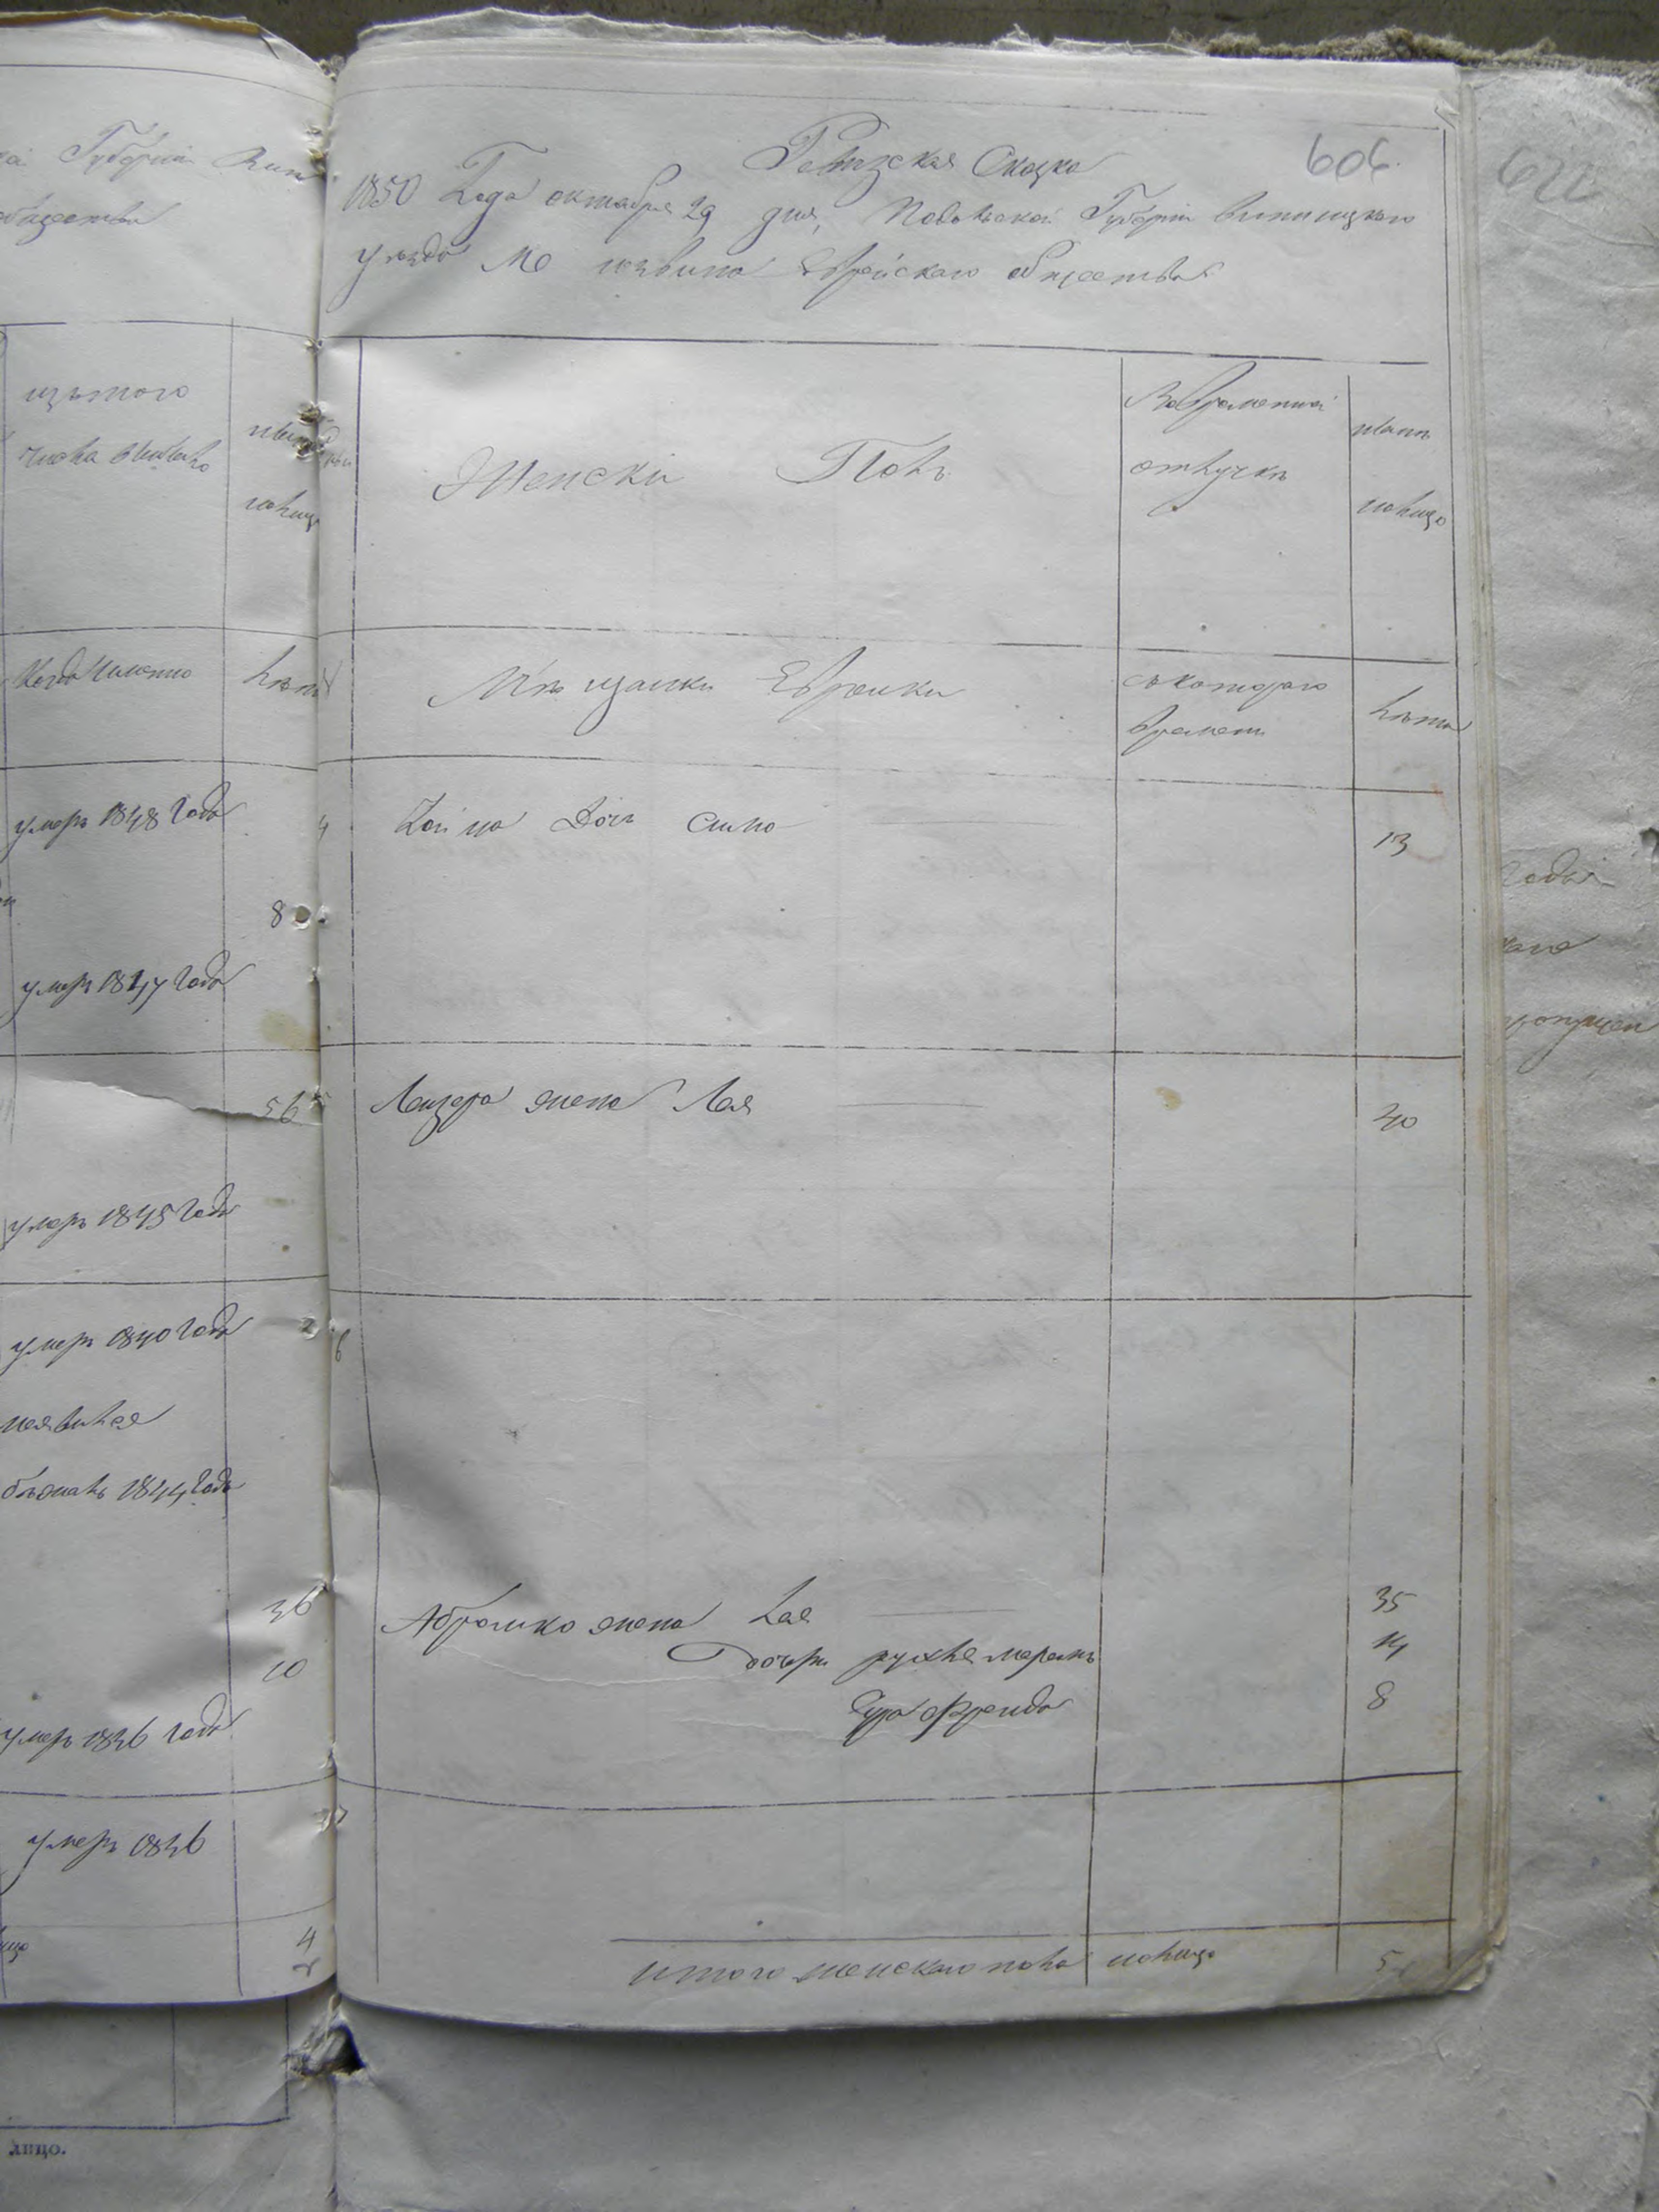 Губерніи Вин
общества
изъ того
числа выбыло
нынѣ
налицо
Когда именно
Лѣта
умеръ 1848 Года
8
умеръ 1847 Года
56
умеръ 1845 Года
умеръ 1840 Года
неявился
бѣжалъ 1844 Года
36
10
умеръ 1846 Года
умеръ 1846
4
лицо.
606.
Ревизская Сказка
1850 Года октября 29 дня, Подольской Губерніи Винницкаго
уезда Мѣ Еврейскаго общества
Женски Полъ
Вовременной
отлучкѣ
налицо
Мѣщанки Еврейки
съ котораго
времени
Лѣта
4
Дочь Сима
13
5
Лейзера жена Лея
40
6
Абрамко жена Хая
35
Дочери рухля меремъ
14
Сура Фрейда
8
7
итого женскаго пола налицо
5
622